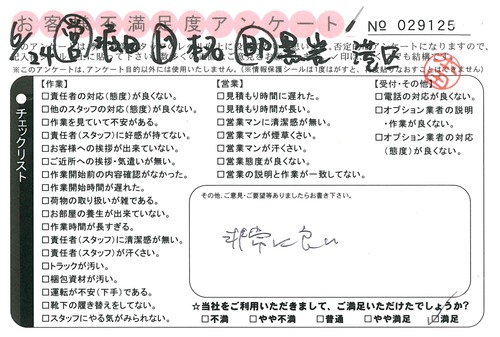 お客様不満足度アンケート
No 029125
※このアンケートは、アンケート目的以外には使用いたしません。(※情報保護シールは1度がはすと、再度貼りなおすことはできません)
チェックリスト
【作業】
□責任者の対応(態度)が良くない。
□他のスタッフの対応(態度)が良くない。
□作業を見ていて不安がある。
□責任者(スタッフ)に好感が持てない。
□お客様への挨拶が出来ていない。
□ご近所への挨拶・気遣いが無い。
□作業開始前の内容確認がなかった。
□作業開始時間が遅れた。
□荷物の取り扱いが雑である。
□お部屋の養生が出来ていない。
□作業時間が長すぎる。
□責任者(スタッフ)に清潔感が無い。
□責任者(スタッフ)が汗くさい。
□トラックが汚い。
□梱包資材が汚い。
□運転が不安(下手)である。
□靴下の履き替えをしてない。
□スタッフにやる気がみられない。
【営業】
□見積もり時間に遅れた。
□見積もり時間が長い。
□営業マンに清潔感が無い。
□営業マンが煙草くさい。
□営業マンが汗くさい。
□営業態度が良くない。
□営業の説明と作業が一致してない。
【受付・その他】
□電話の対応が良くない。
□オプション業者の説明
・作業が良くない。
□オプション業者の対応
(態度)が良くない。
その他、ご意見・ご要望等ありましたらお書き下さい。
非常に良い
☆当社をご利用いただきまして、ご満足いただけたでしょうか?
□不満 □やや不満 □普通 □やや満足 □満足